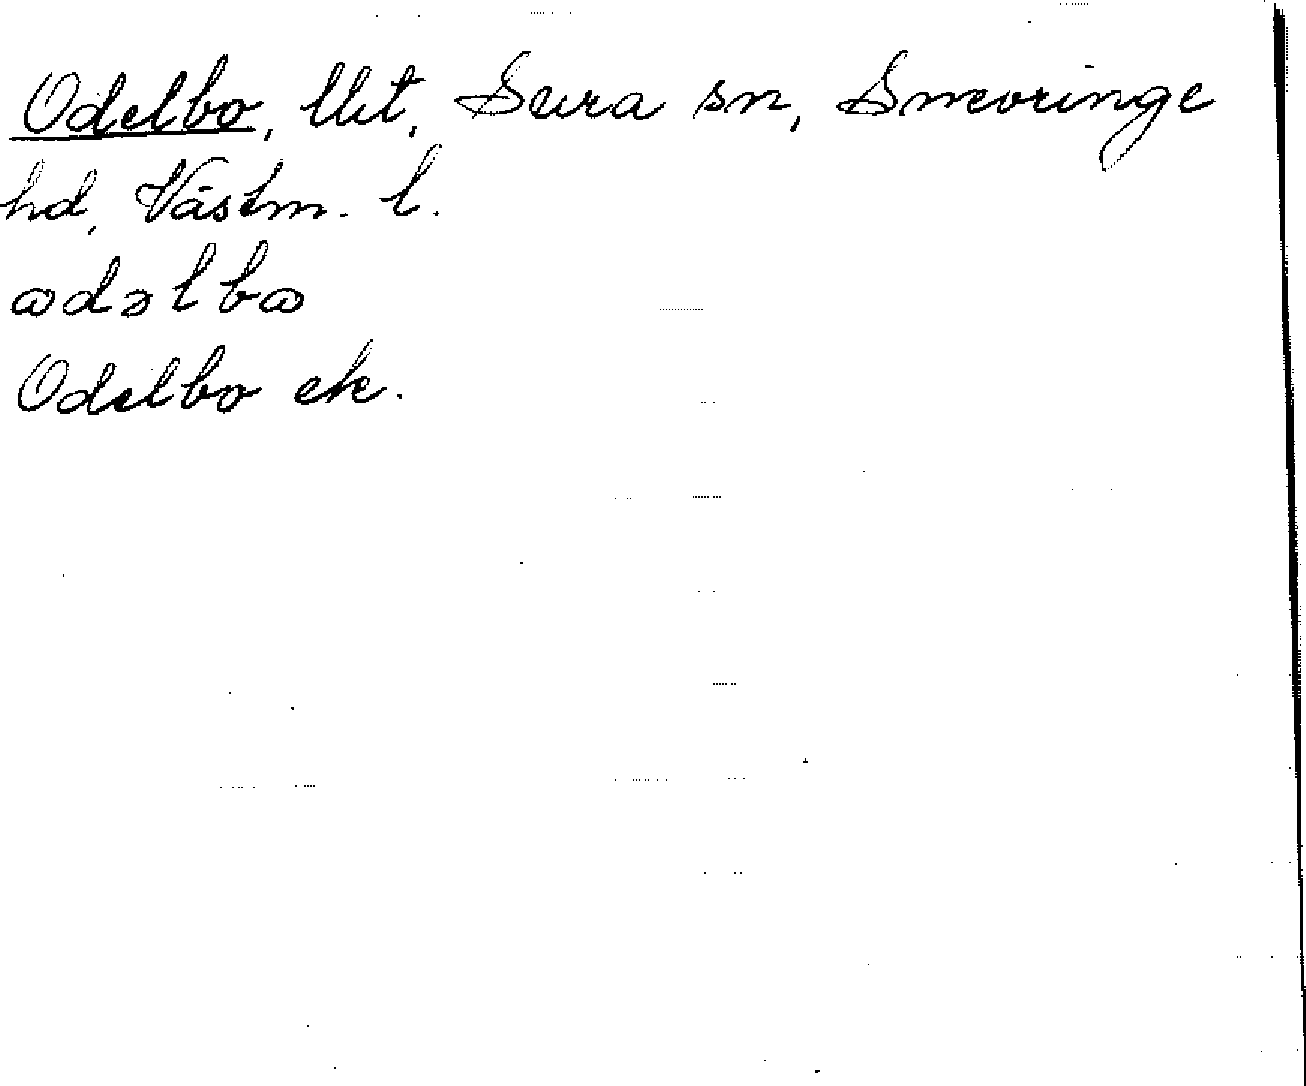 Odelbo, Ut, Sura sn, Snevringe
hd, Västm. l.
ꙍdəlbꙍ
Odelbo ek.